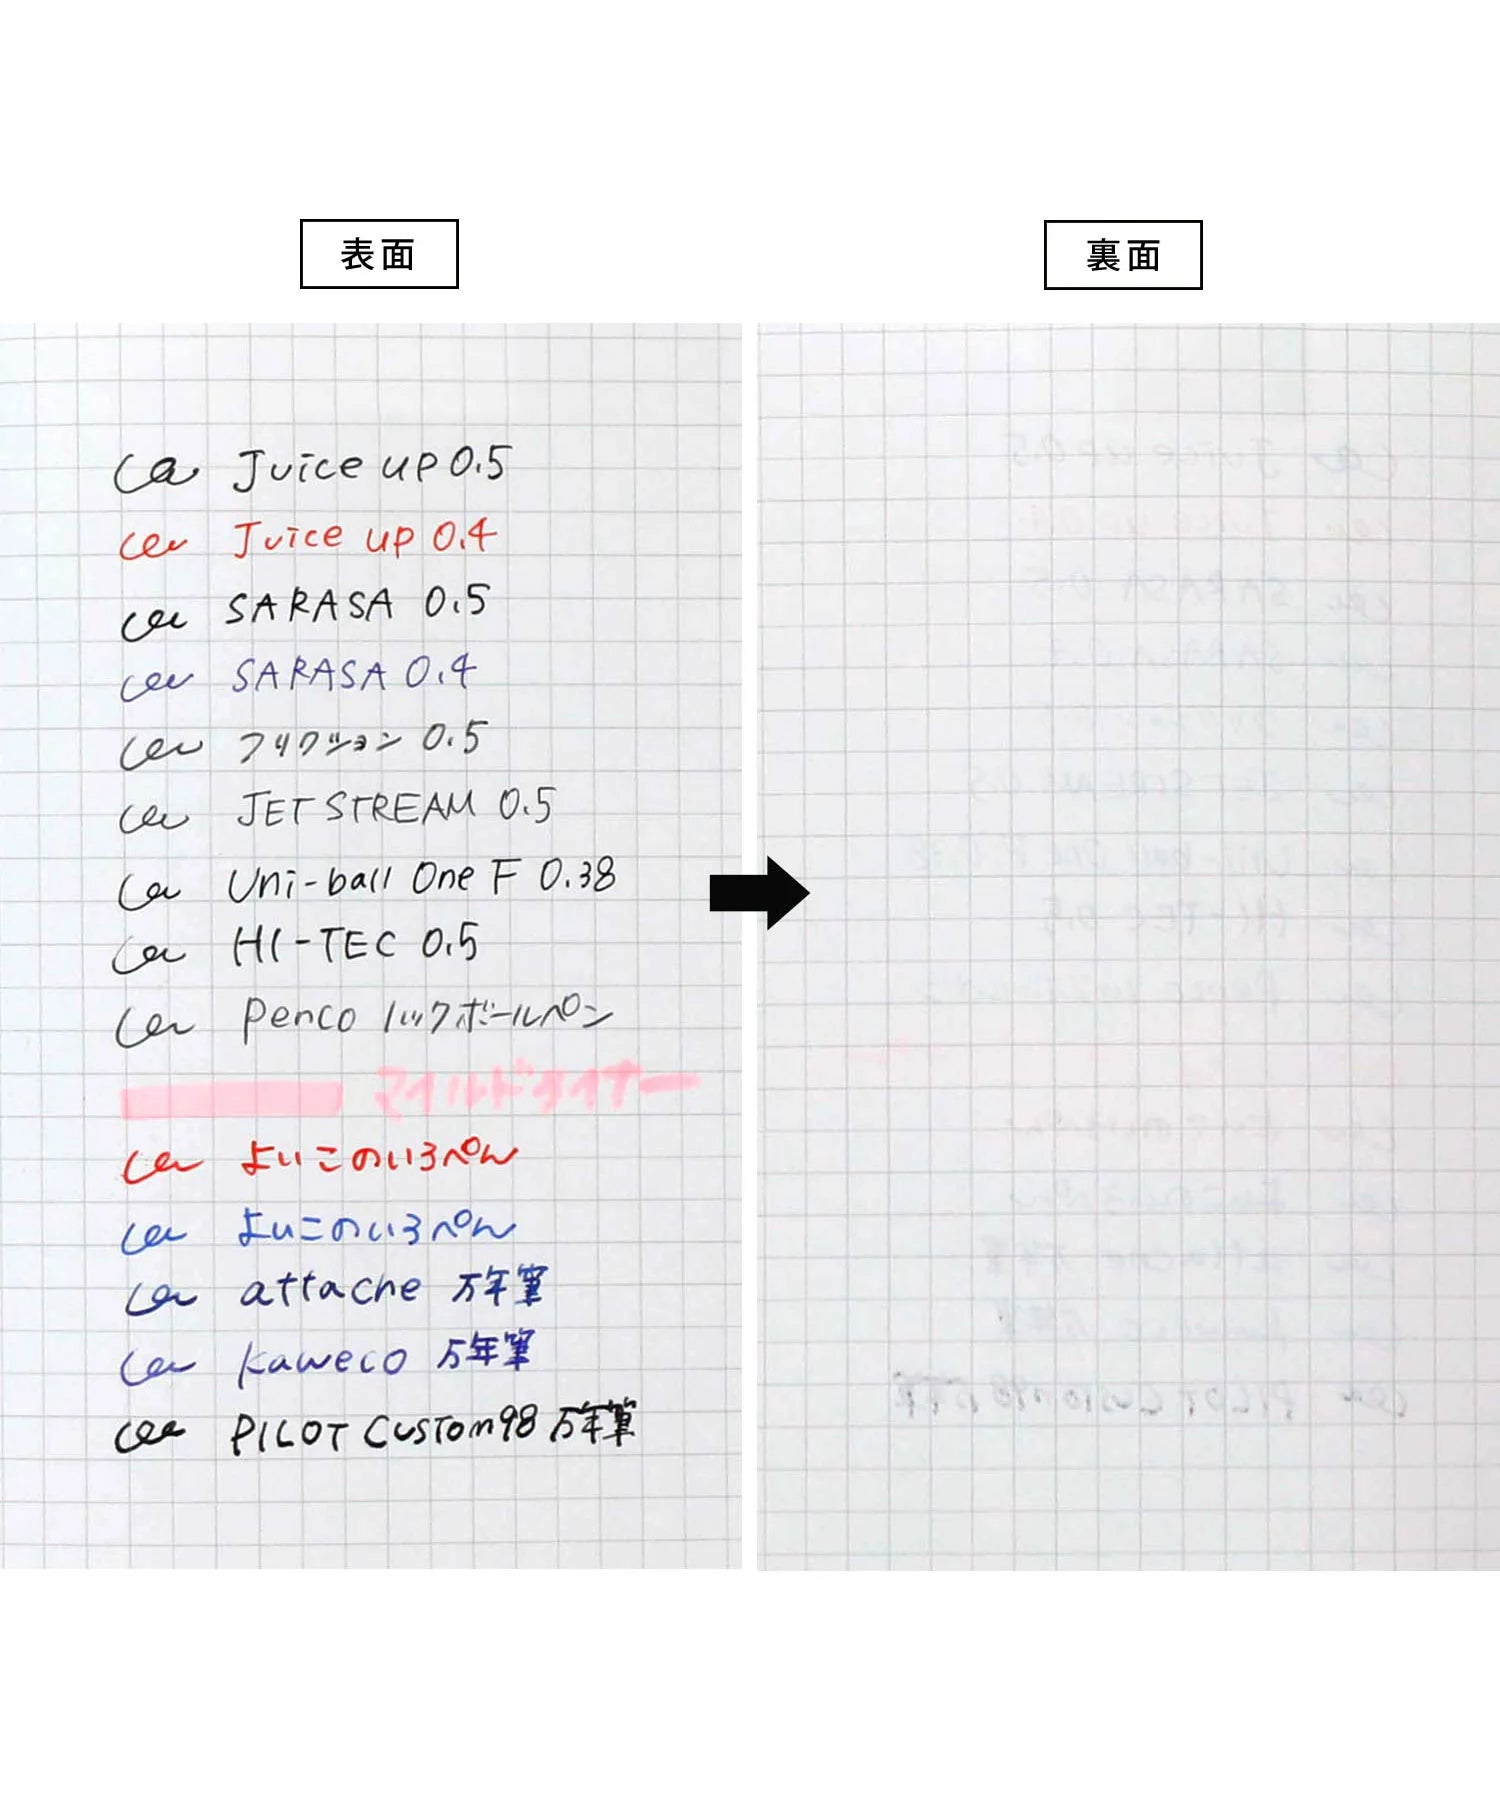 表面
裏面
Ca Juice up 0.5
Juice up 0.4
SARASA 0.5
SARASA 0.4
フリクション 0.5
JET STREAM 0.5
Uni-ball One F 0.38
HI-TEC 0.5
Penco ノックボールペン
マイルドライナー
よいこのいろぺん
よいこのいろぺん
attache 万年筆
kaweco 万年筆
PILOT Custom98 万年筆